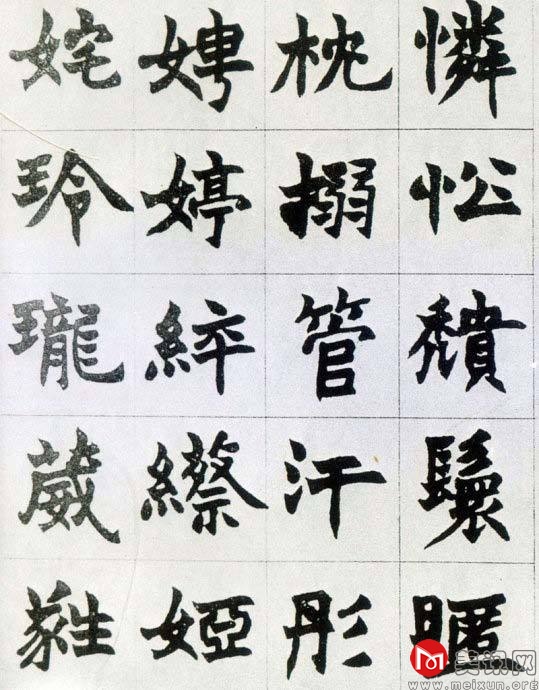 憐忪穨鬟暱
枕搦管汗彤
娉婷綷縩婭
姹玲瓏葳蕤
美讯网
www.meixun.org